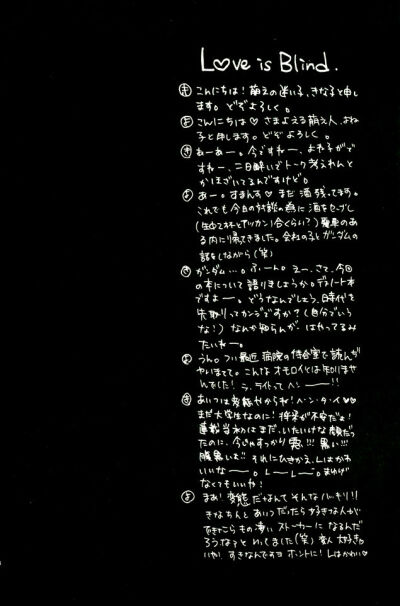 Love is Blind.
き こんにちは！萌えの迷い子、きな子と申し
ます。どぞよろしく。
よ こんにちは♡さまよえる萌え人、よね
子と申します。どぞよろしく。
き あーあー。今ですねー、よね子がで
すねー、二日酔いでトーク考えれんと
かほざいてるんですけど。
よ あー。すまんす♡まだ酒残ってます。
これでも今日の対談の為に酒をセーブし
（生中7杯とデッカン1合くらい？）電車のあ
る内に帰ってきました。会社の子とガンダムの
話をしながら（笑）
き ガンダム…。ふーん。えー、さて、今回
の本について語りましょうか。デスノート本
ですよー。どうなんでしょう、時代を
先取りってカンジですか？（自分でいう
な！）なんか知らんが、はやってるみ
たいねー。
よ うん。つい最近病院の待合室で読んぢ
ゃいまして。こんなオモロイとは知りませ
んでした！ う、ライトってヘンーー！！
き あいつは変態だからね！ヘ・ン・タ・イ♡♡
まだ大学生なのに！将来が不安だよ！
連載当初はまだ、いたいけな顔だっ
たのに、今じゃすっかり悪!!! 黒い!!!
腹黒いよ!! それにひきかえ、Lはかわ
いいなー。Lーしー。まゆげ
なくてもいいや！
よ まあ！変態だなんてそんなハッキリ！！
きなちんとあいつだったら好きな人が
できたらもの凄いストーカーになるんだ
ろうなーと いってました（笑）変人大好きっ
いや！すきなんですョホントに！Lはかわい♡